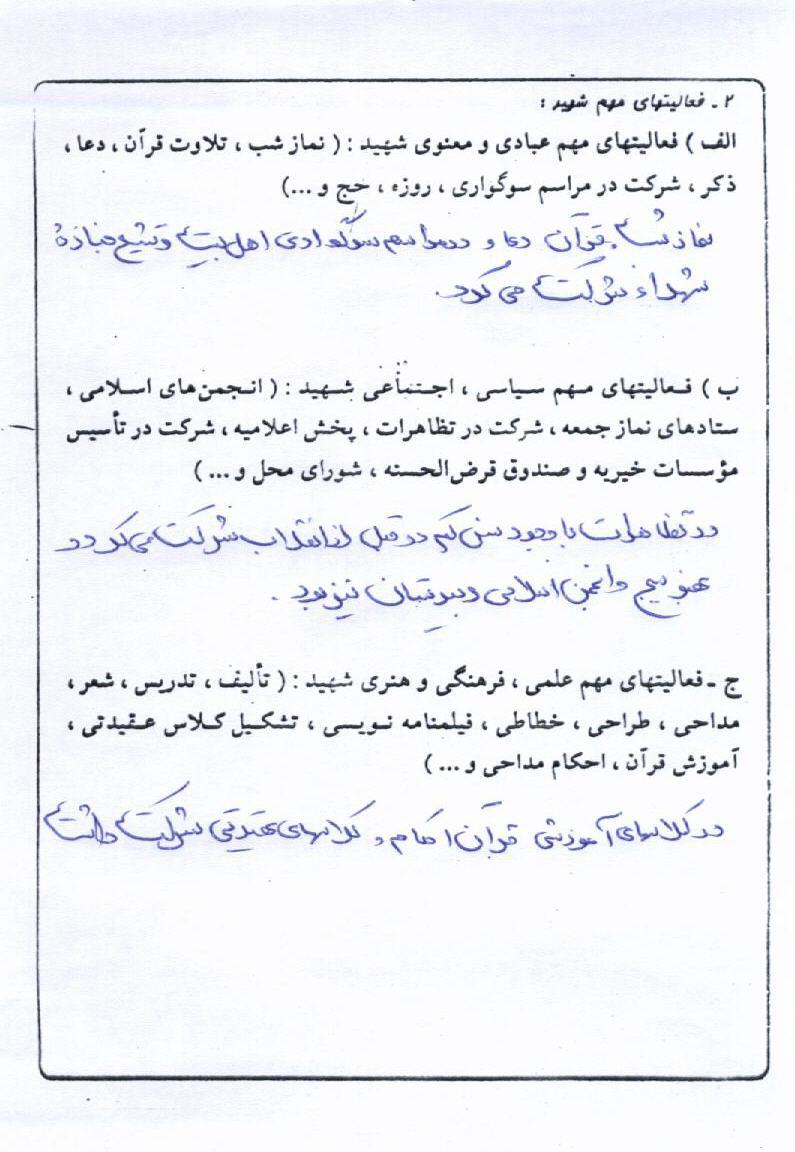 ۲ ـ فعالیتهای مهم شهید :
الف ) فعالیتهای مهم عبادی و معنوی شهید : ( نماز شب ، تلاوت قرآن ، دعا ،
ذکر ، شرکت در مراسم سوگواری ، روزه ، حج و ...)
نماز شب ، قرآن دعا و در مراسم سوگواری اهل بیت و تشیع جنازهٔ
شهداء شرکت می کرد.
ب ) فعالیتهای مهم سیاسی ، اجتماعی شهید : ( انجمن‌های اسلامی ،
ستادهای نماز جمعه ، شرکت در تظاهرات ، پخش اعلامیه ، شرکت در تأسیس
مؤسسات خیریه و صندوق قرض‌الحسنه ، شورای محل و ... )
در تظاهرات با وجود سن کم در قبل از انقلاب شرکت می کرد و
عضو بسیج و انجمن اسلامی دبیرستان نیز بود .
ج ـ فعالیتهای مهم علمی ، فرهنگی و هنری شهید : ( تألیف ، تدریس ، شعر ،
مداحی ، طراحی ، خطاطی ، فیلمنامه نویسی ، تشکیل کلاس عقیدتی ،
آموزش قرآن ، احکام مداحی و ... )
در کلاسهای آموزشی قرآن احکام و کلاسهای عقیدتی شرکت داشت